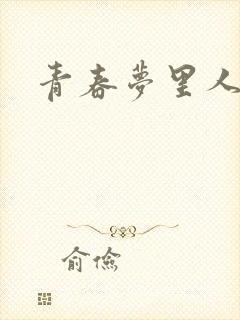 青春夢里人
俞俭